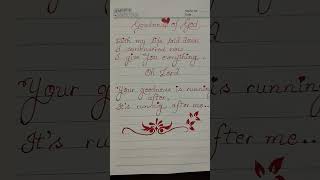 Goodness of God
With my life laid down
I surrendered now
I give You everything
Oh Lord
Your goodness is running
after,
It's running after me...